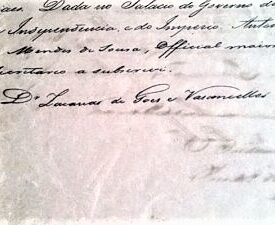 Dada no Palacio do Governo d
Independencia, e do Imperio. Anto
Mendes de Souza, Official maior
cretario a subscrevi.
Dr Zacarias de Goes e Vasconcellos